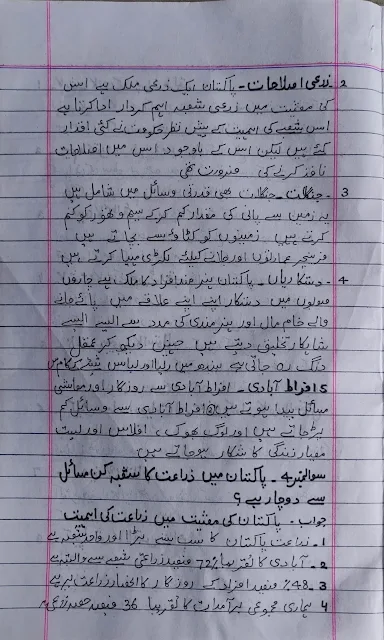 2۔ زرعی اصلاحات۔ پاکستان ایک زرعی ملک ہے اس
کی معیشت میں زرعی شعبہ اہم کردار ادا کرتا ہے
اس شعبے کی اہمیت کے پیش نظر حکومت نے کئی اقدار
کئے ہیں لیکن اس کے باوجود اس میں اصلاحات
نافذ کرنے کی ضرورت تھی
3۔ جنگلات۔ جنگلات بھی قدرتی وسائل میں شامل ہیں
یہ زمین سے پانی کی مقدار کم کر کے سیم و تھور کو کم
کرتے ہیں زمینوں کو کٹاؤ سے بچاتے ہیں
فرنیچر عمارتوں اور جلانے کیلئے لکڑی مہیا کرتے ہیں
4۔ دستکاریاں۔ پاکستان ہنر مند افراد کا ملک ہے چاروں
صوبوں میں دستکار اپنے اپنے علاقے میں پائے جانے
والے خام مال اور ہنر مندی کی مدد سے ایسے ایسے
شاہکار تخلیق دیتے ہیں جنہیں دیکھ کر عقل
دنگ رہ جاتی ہے سندھ میں اور لباس پر کام میں
5 افراط آبادی۔ افراط آبادی سے روزگار اور معاشی
مسائل پیدا ہوتے ہیں افراط آبادی سے وسائل کم
پڑ جاتے ہیں اور لوگ بھوک، افلاس اور پست
معیار زندگی کا شکار ہو جاتے ہیں
سوال نمبر 4۔ پاکستان میں زراعت کا شعبہ کن مسائل
سے دوچار ہے؟
جواب۔ پاکستان کی معیشت میں زراعت کی اہمیت
1۔ زراعت پاکستان کا سب سے بڑا اور شعبہ ہے
2۔ آبادی کا تقریباً 72% فیصد زراعتی شعبے سے وابستہ ہے
3۔ 48% فیصد افراد کے روزگار کا انحصار زراعت پر ہے
4 ہماری مجموعی برآمدات کا تقریباً 36 فیصد حصہ زرعی